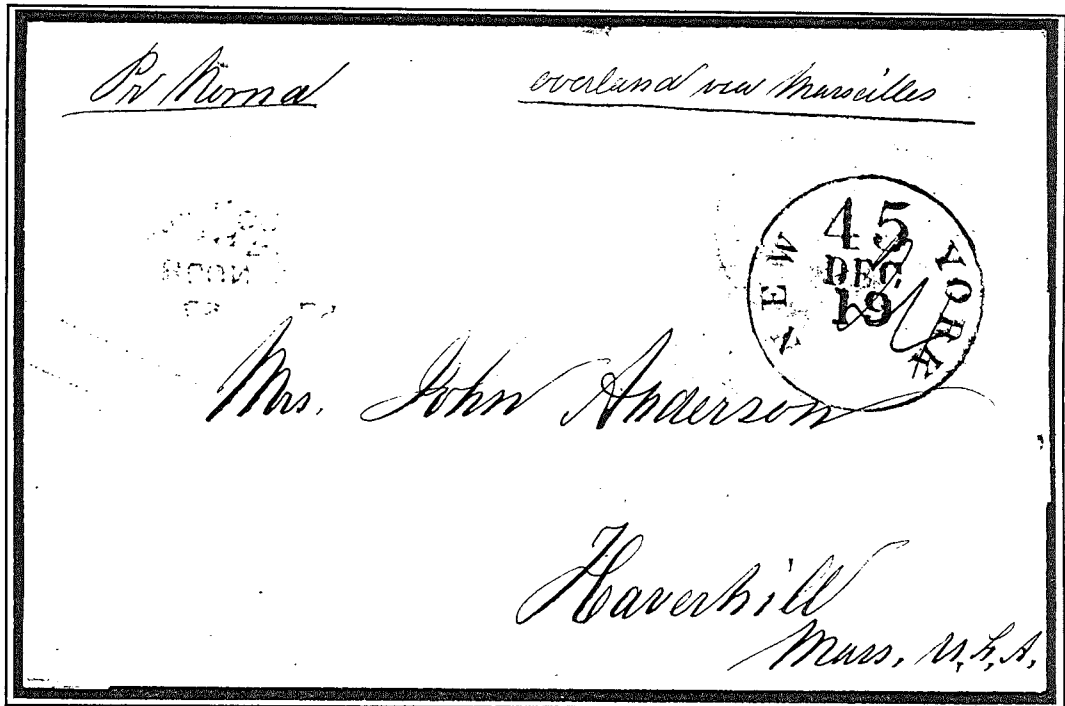 Pr Norna overland via Marseilles
NEW YORK
45
DEC
19
Mrs. John Anderson
Haverhill
Mass, U.S.A.